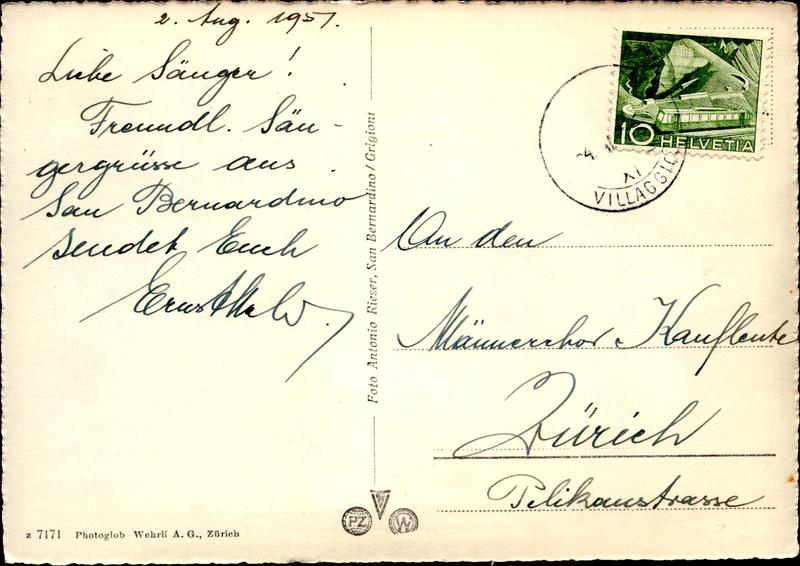 2. Aug. 1951.
Liebe Sänger!
Freundl. Sän-
gergrüsse aus
San Bernardino
sendet Euch
Ernst
Foto Antonio Rieser, San Bernardino/Grigioni
10 HELVETIA
-4.
XI
VILLAGGIO
An den
Männerchor Kaufleute
Zürich
Pelikanstrasse
PZ W
z 7171 Photoglob Wehrli A.G., Zürich